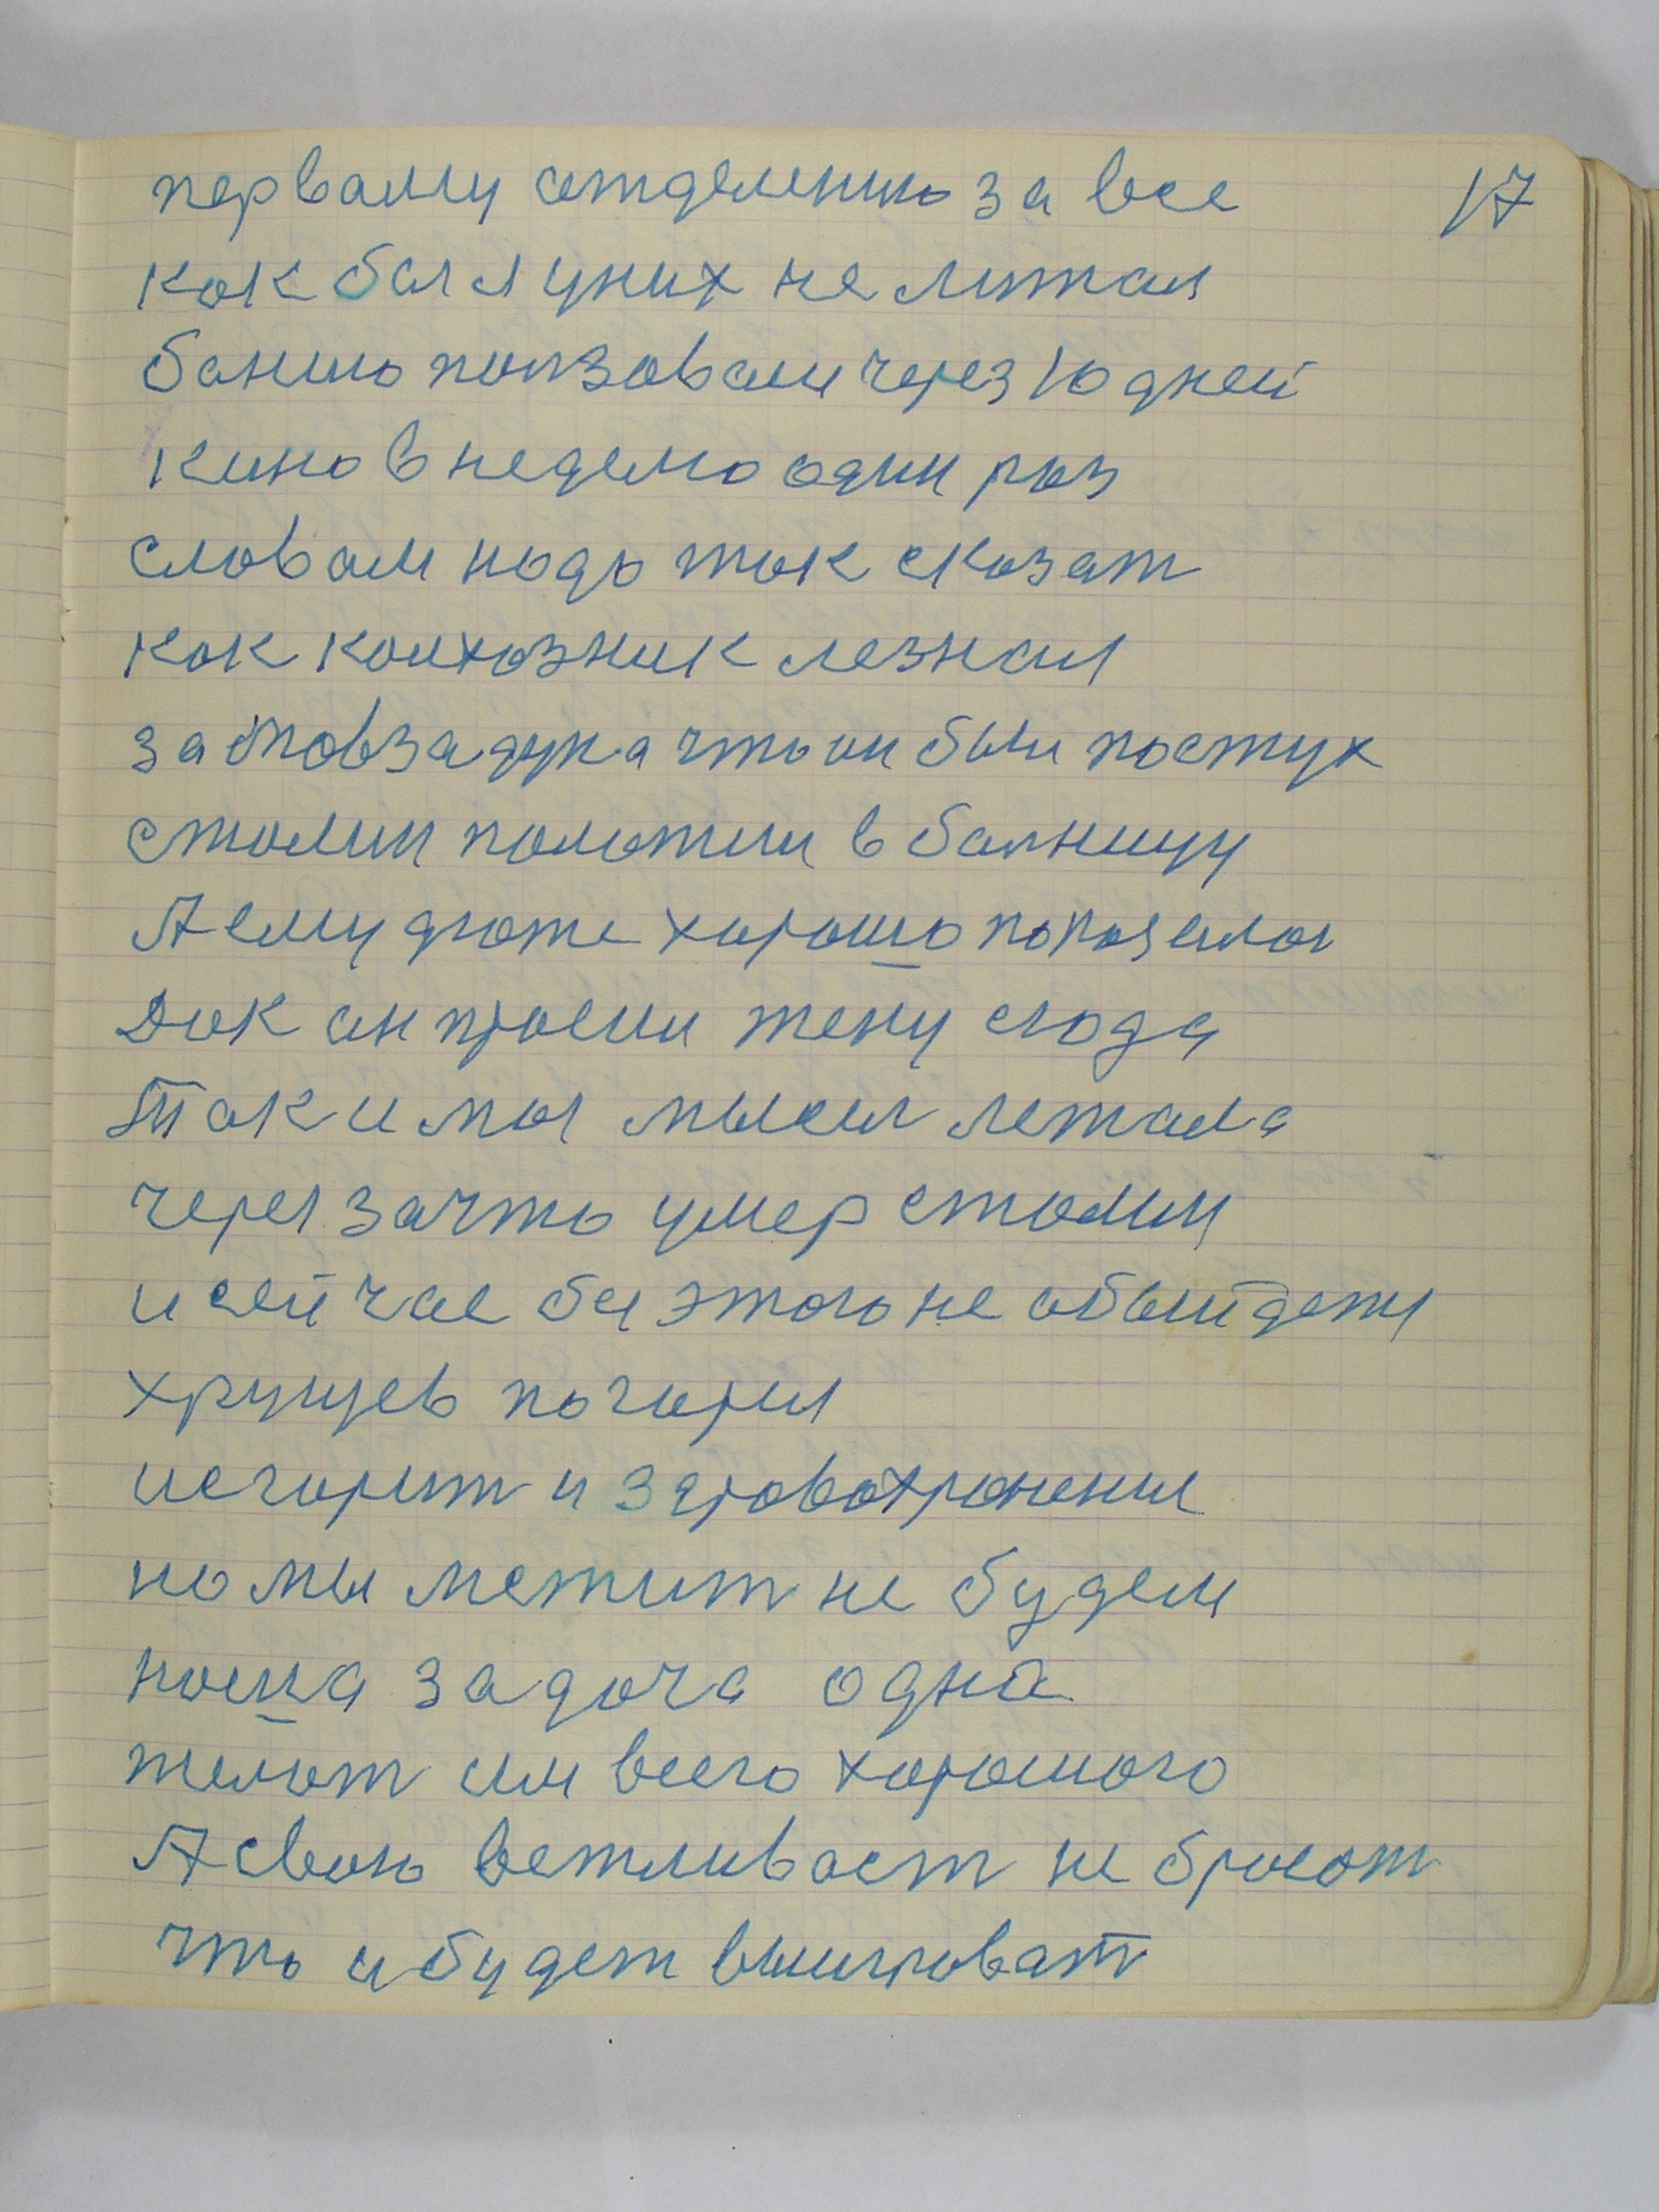 первaму отделению за все 17
как бал я уних не литал
банию ползовали через 10 дней
кино в неделю один раз
словам надо так сказат
как колхозник лезнал
за что он был постух
сталин положили в балницу
А ему дюже хорошо показалас
Дак он просил жену сюда
Так и мы мысел летала
через зачто умер сталин
и сейчас без этого не абыйдетя
хрущев погорел
исгорит и здровохронение
но мы мстит не будем
наша задача одна
желат им всего хорошого
А свою вежливаст не бросат
что и будет выигроват